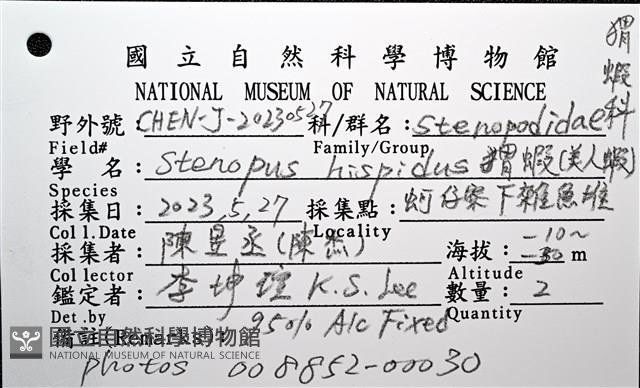 國立自然科學博物館
NATIONAL MUSEUM OF NATURAL SCIENCE
野外號:CHEN-J-20230527 科/群名:Stenopodidae 猬蝦科
Field# Family/Group
學 名:Stenopus hispidus 猬蝦(美人蝦)
Species
採集日:2023,5,27 採集點:蚵仔寮下雜魚堆
Coll.Date Locality
採集者:陳昱丞(陳杰) 海拔:-10~-30 m
Collector Altitude
鑑定者:李坤瑄 K.S.Lee 數量:2
Det.by Quantity
備註(Remarks): 95% Alc Fixed
國立自然科學博物館
NATIONAL MUSEUM OF NATURAL SCIENCE
photos 008852-00030